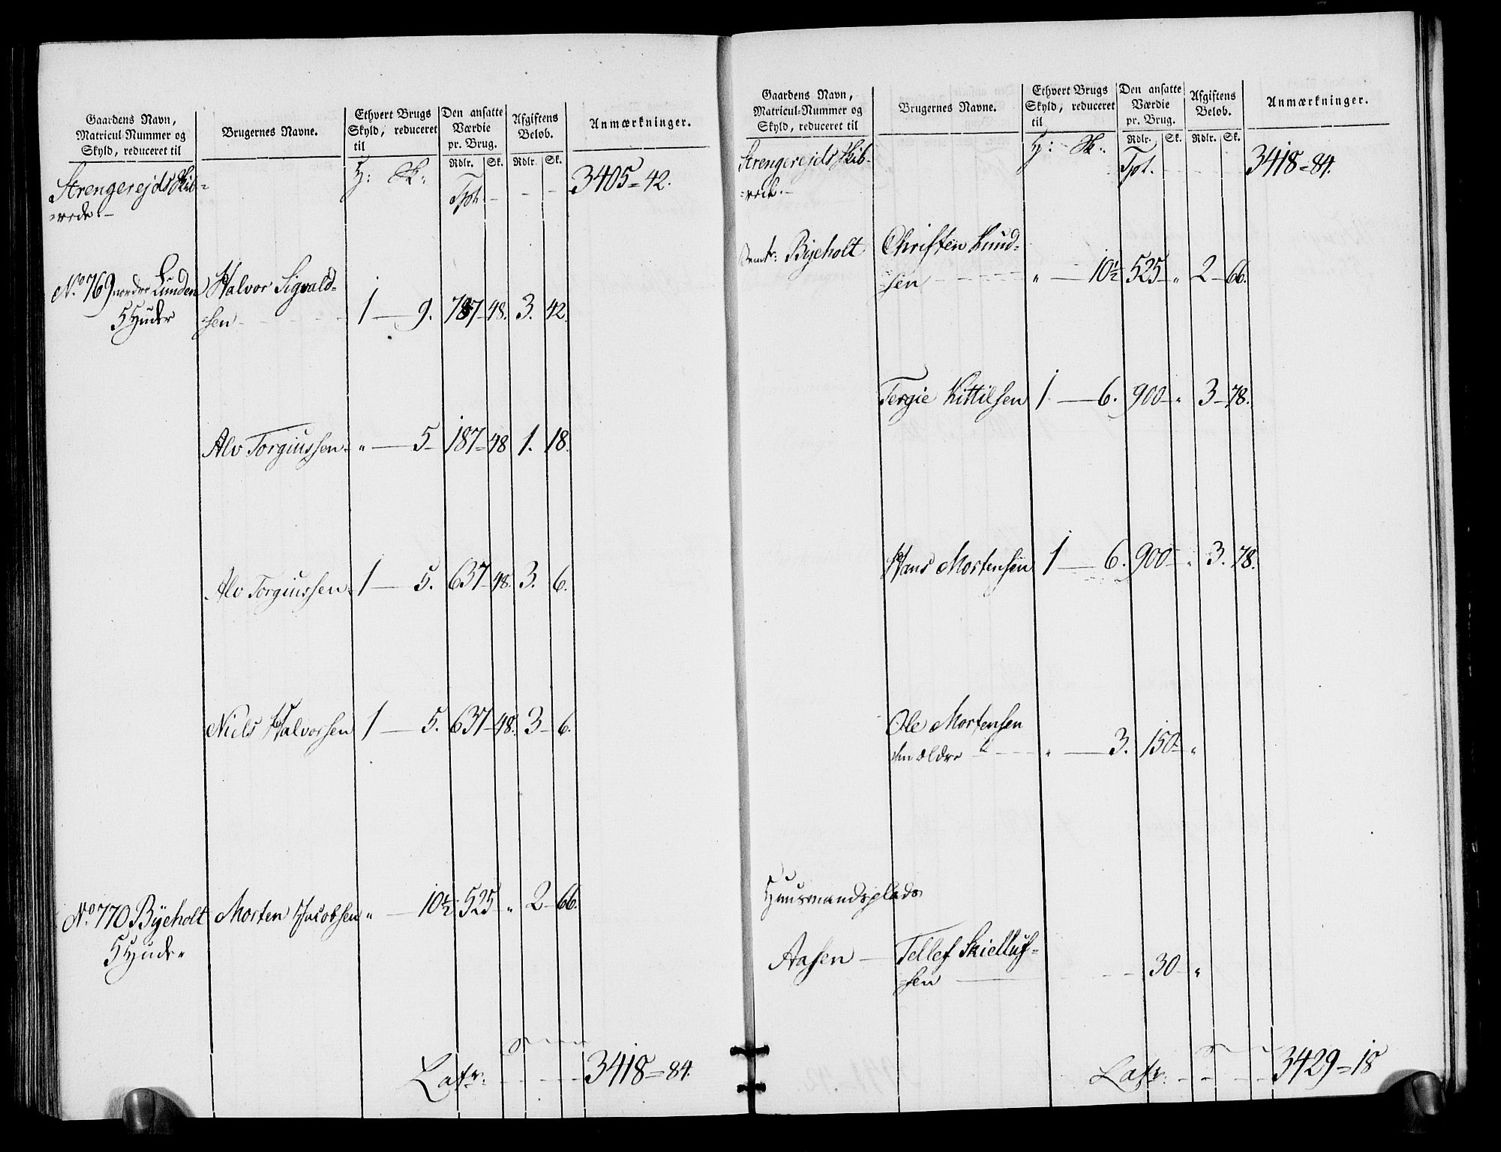 Gaardens Navn,
Matricul-Nummer og
Skyld, reduceret til
Brugernes Navne.
Ethvert Brugs
Skyld, reduceret
til
Den ansatte
Værdie
pr. Brug.
Rdlr. Sk.
Afgiftens
Beløb.
Rdlr. Sk.
Anmærkninger.
Strengereids Skib-
rede.
H: Sk: Tpt. 3405 = 42.
No 769 nordre Lunden Halvor Sigvald-
5 Huder sen 1 9. 787 48. 3. 42.
Alv Torgiussen " 5 187 48 1. 18.
Alv Torgiussen 1 5. 637 48. 3. 6.
Niels Halvorsen 1 5. 637 48. 3 6.
No 770 Byeholt Morten Jacobsen " 10½ 525 " 2 66.
5 Huder
Latr: 3418 = 84.
Gaardens Navn,
Matricul-Nummer og
Skyld, reduceret til
Brugernes Navne.
Ethvert Brugs
Skyld, reduceret
til
Den ansatte
Værdie
pr. Brug.
Rdlr. Sk.
Afgiftens
Beløb.
Rdlr. Sk.
Anmærkninger.
Strengereids Skib-
rede.
H: Sk: Tpt. 3418 = 84.
Byeholt Christen Knud-
sen " 10½ 525 " 2 66.
Tergie Kittilsen 1 6. 900 " 3 78.
Hans Mortensen 1 6. 900 " 3. 78.
Ole Mortensen
den ældre " 3. 150 "
Huusmandsplads
Aasen Tellef Skielluf-
sen 30 "
Latr: 3429 = 18